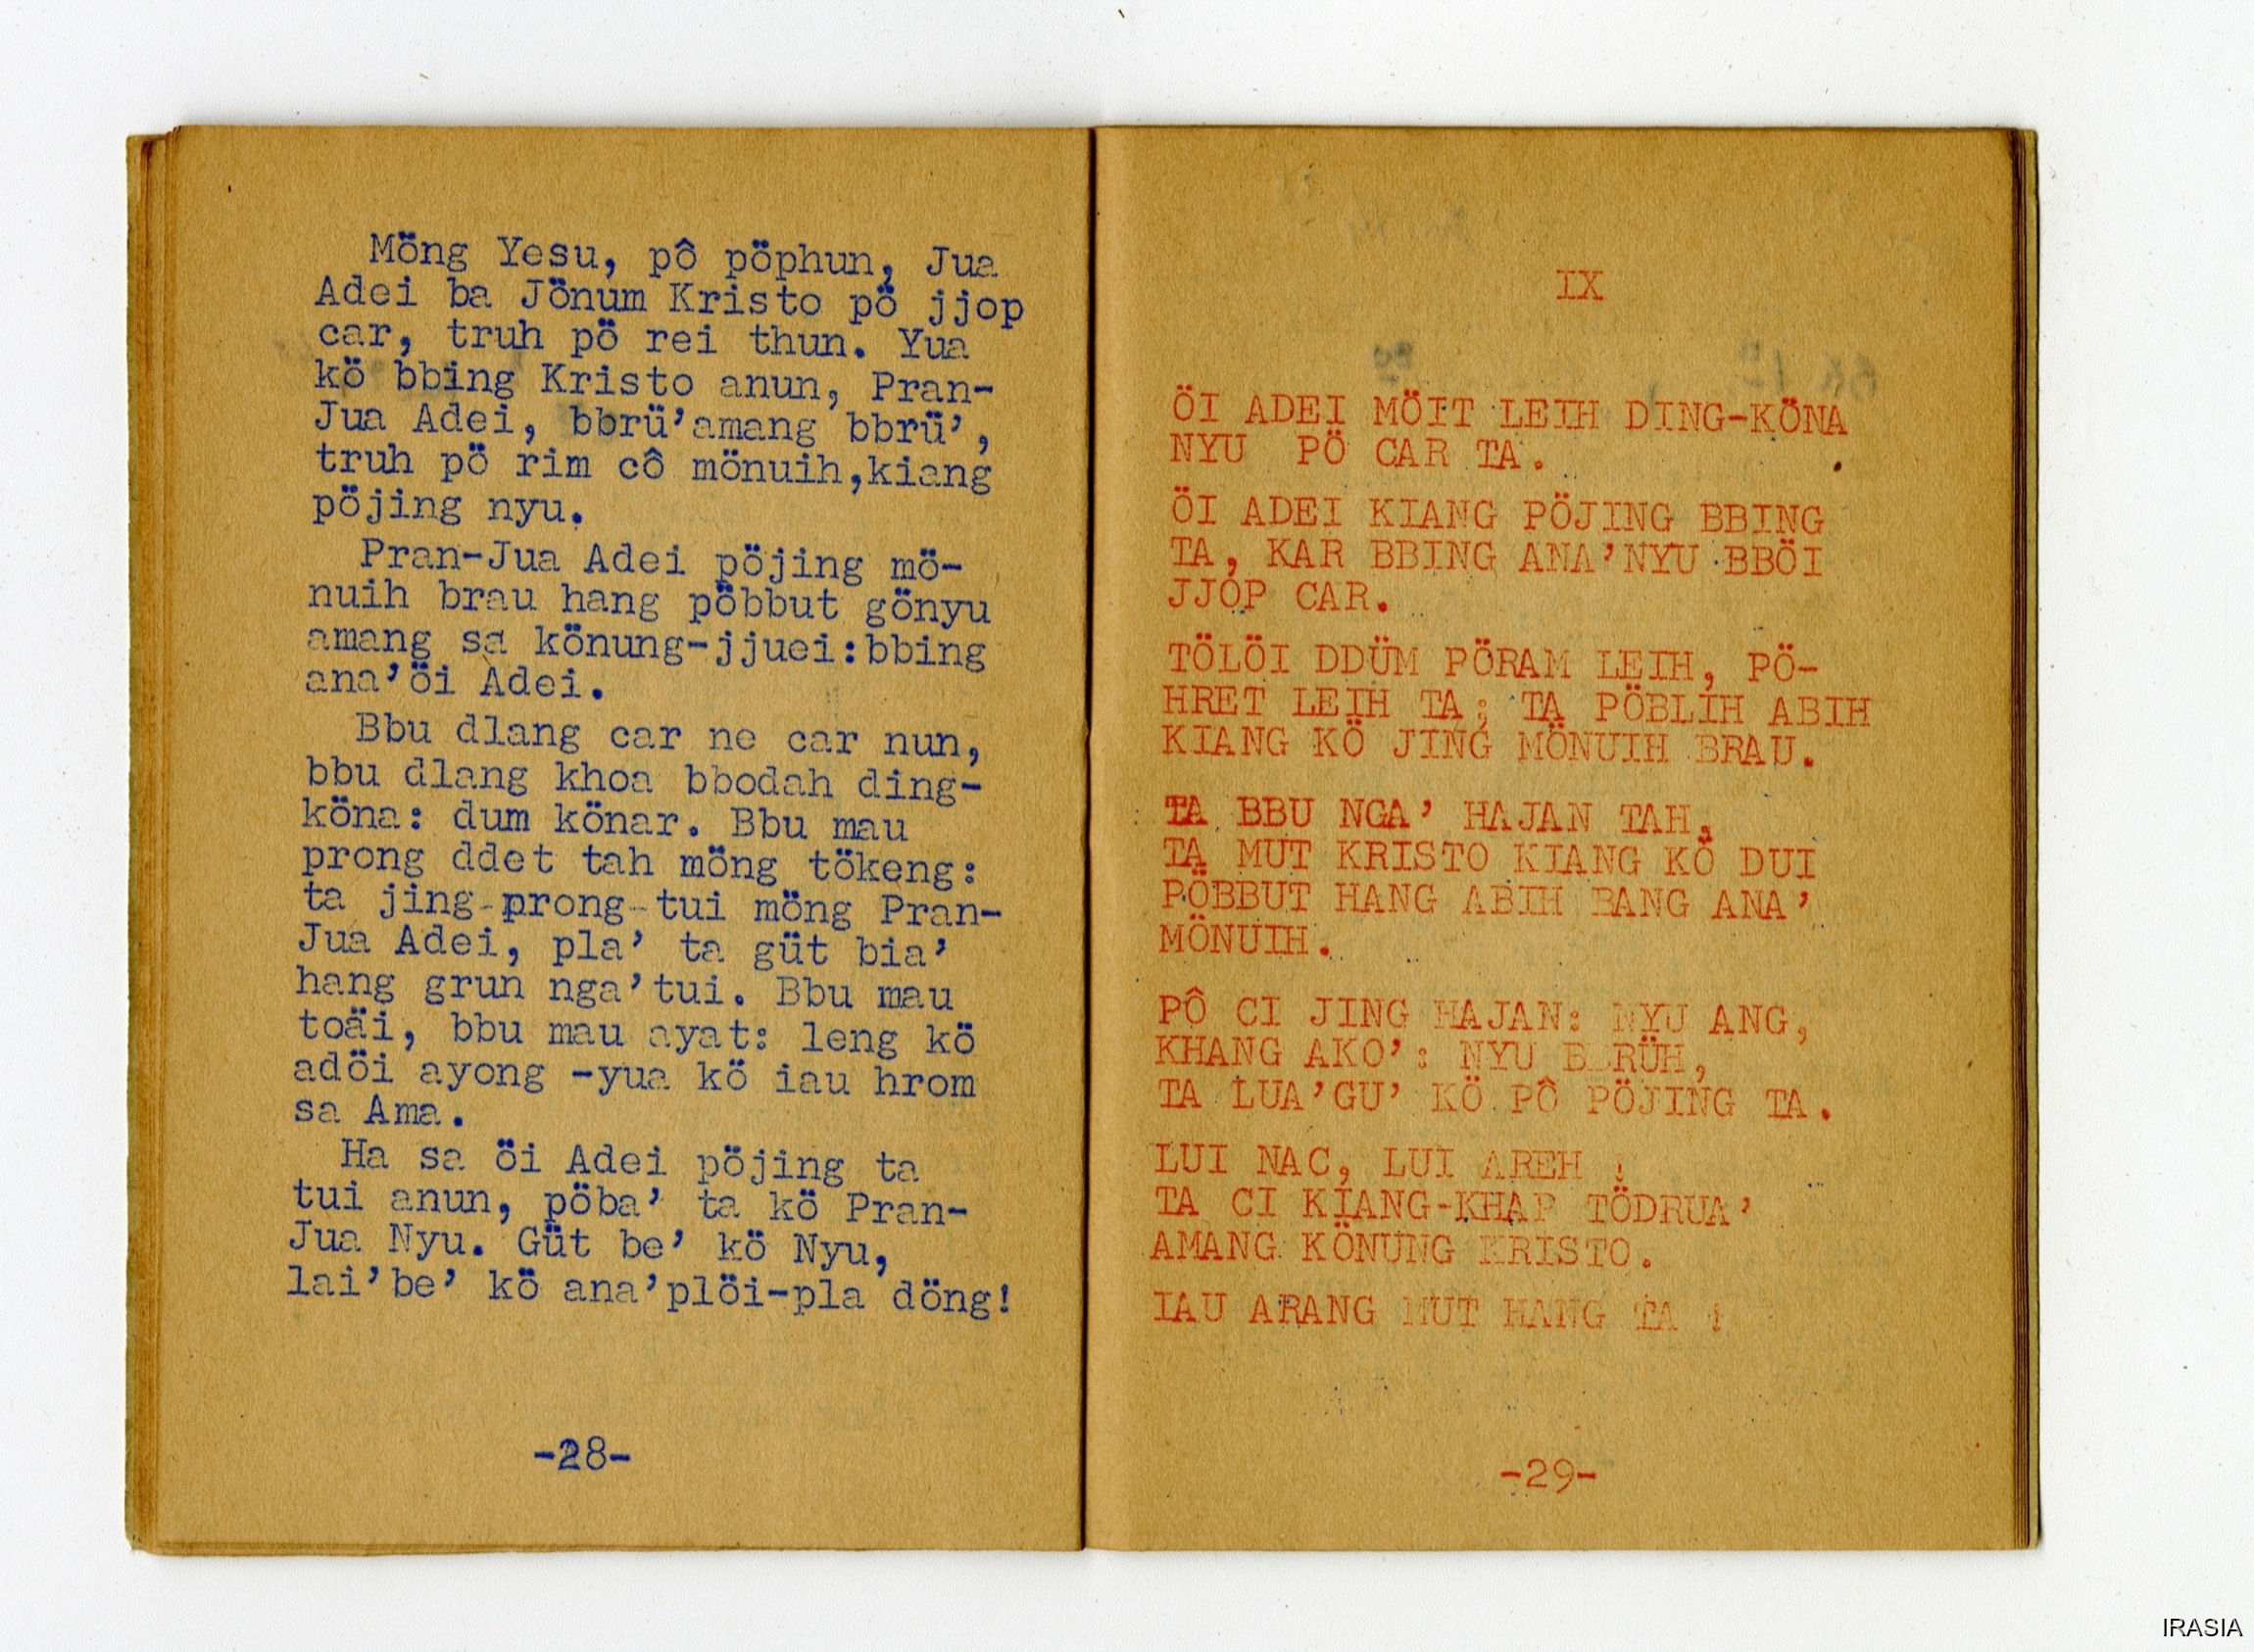 Möng Yesu, pô pöphun, Jua
Adei ba Jönum Kristo pö jjop
car, truh pö rei thun. Yua
kö bbing Kristo anun, Pran-
Jua Adei, bbrü’amang bbrü’,
truh pö rim cô mönuih,kiang
pöjing nyu.
Pran-Jua Adei pöjing mö-
nuih brau hang pöbbut gönyu
amang sa könung-jjuei:bbing
ana’öi Adei.
Bbu dlang car ne car nun,
bbu dlang khoa bbodah ding-
köna: dum könar. Bbu mau
prong ddet tah möng tökeng:
ta jing-prong-tui möng Pran-
Jua Adei, pla’ ta güt bia’
hang grun nga’tui. Bbu mau
toäi, bbu mau ayat: leng kö
adöi ayong -yua kö iau hrom
sa Ama.
Ha sa öi Adei pöjing ta
tui anun, pöba’ ta kö Pran-
Jua Nyu. Güt be’ kö Nyu,
lai’be’ kö ana’plöi-pla döng!
-28-
IX
ÖI ADEI MÖIT LEIH DING-KÖNA
NYU PÖ CAR TA.
ÖI ADEI KIANG PÖJING BBING
TA, KAR BBING ANA’NYU BBÖI
JJOP CAR.
TÖLÖI DDÜM PÖRAM LEIH, PÖ-
HRET LEIH TA; TA PÖBLIH ABIH
KIANG KÖ JING MÖNUIH BRAU.
TA BBU NGA’ HAJAN TAH,
TA MUT KRISTO KIANG KÖ DUI
PÖBBUT HANG ABIH BANG ANA’
MÖNUIH.
PÔ CI JING HAJAN: NYU ANG,
KHANG AKO’: NYU BBRÜH,
TA LUA’GU’ KÖ PÔ PÖJING TA.
LUI NAC, LUI AREH !
TA CI KIANG-KHAP TÖDRUA’
AMANG KÖNUNG KRISTO.
IAU ARANG MUT HANG TA !
-29-
IRASIA